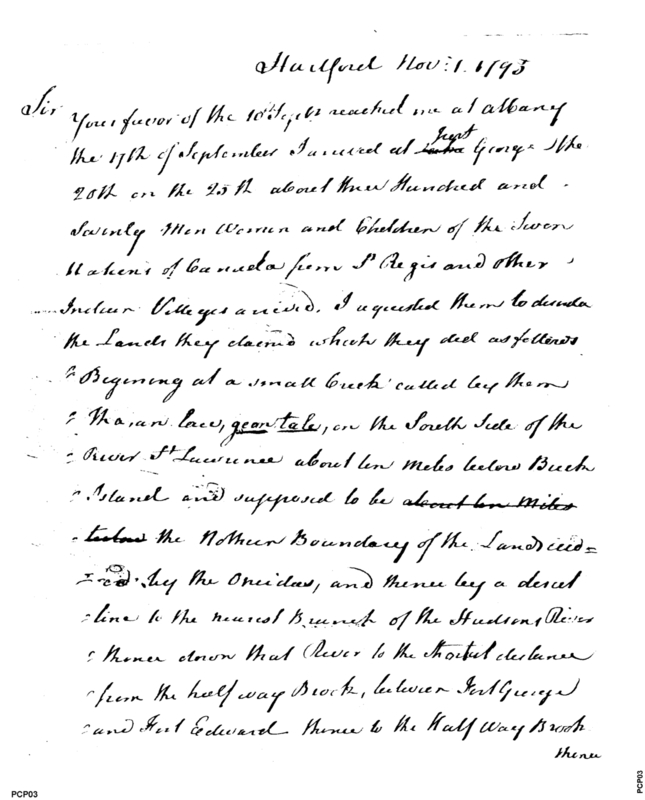 Hartford Nov: 1. 1793
Sir
Your favor of the 10th Septr reached me at albany
the 17th of September I arrived at Fort George the
20th on the 25th about three Hundred and
Seventy Men Women and Children of the Seven
Nations of Canada from St Regis and other
Indian Villages arrived. I requested them to
the Lands they claimed which they did as follows
" Begining at a small Creek called by them
on the South Side of the
" River St Lawrence about ten miles below Buck
" Island and supposed to be about ten Miles
below the Nothern Boundary of the Lands ced=
=ed by the Oneidas, and thence by a direct
" line to the nearest Branch of the Hudsons River
" thence down that River to the shortest distance
" from the half way Brook, between Fort George
" and Fort Edward thence to the Half Way Brook
thence
PCP03
PCP03